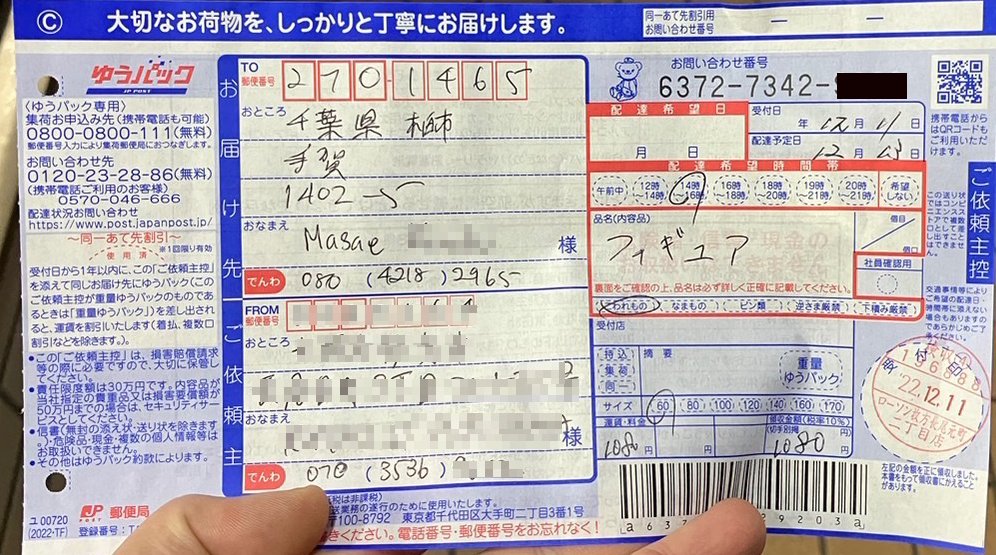 Ⓒ 大切なお荷物を、しっかりと丁寧にお届けします。
同一あて先割引用
お問い合わせ番号
ゆうパック
JP POST
〈ゆうパック専用〉
集荷お申込み先(携帯電話も可能)
0800-0800-111(無料)
郵便番号入力により集荷郵便局におつなぎします。
お問い合わせ先
0120-23-28-86(無料)
(携帯電話ご利用のお客様)
0570-046-666
配達状況お問い合わせ
https://www.post.japanpost.jp/
〜同一あて先割引〜
使用済
※1回限り有効
受付日から1年以内に、この「ご依頼主控」
を添えて同じお届け先にゆうパック(この
ご依頼主控が重量ゆうパックのものであ
るときは「重量ゆうパック」)を差し出され
ると、運賃を割引いたします(着払、複数口
割引などを除きます。)。
●この「ご依頼主控」は、損害賠償請求
等の際に必要ですので、大切に保管し
てください。
●責任限度額は30万円です。内容品が
当社指定の貴重品又は損害要償額が
50万円までの場合は、セキュリティサー
ビスとしてください。
●信書(無封の添え状・送り状を除きます。)
・危険品・現金・複数の個人情報等は
お取扱いできません。
●その他はゆうパック約款によります。
ユ00720
(2022・TF)
JP POST 郵便局
登録番号:T
お届け先
TO
郵便番号
270-1465
おところ
千葉県 柏市
手賀
1402-5
おなまえ
Masae
様
でんわ 080 (4218) 2965
ご依頼主
FROM
郵便番号
おところ
おなまえ
様
でんわ 070 (3536)
100-8792 東京都千代田区大手町二丁目3番1号
電話番号・郵便番号をお忘れなく!
お問い合わせ番号
6372-7342-
配達希望日
月 日
受付日
年 12月 11日
配達予定日
12月 13日
配達希望時間帯
午前中
12時〜14時
14時〜16時
16時〜18時
18時〜20時
19時〜21時
20時〜21時
希望しない
品名(内容品)
フィギュア
個目
個口
裏面をご確認の上、品名は必ず詳しく正確に記載してください。
社員確認用
こわれもの
なまもの
ビン類
逆さま厳禁
下積み厳禁
受付店
持込
集荷
同一
摘要
重量
ゆうパック
サイズ 60 80 100 120 140 160 170
運賃・料金
1080円
領収金額(税率10%)
切手別納
1080円
22.12.11
二丁目店
左記の金額を正に領収しました。
本書をもって領収書にかえることが
あります。
携帯電話から
はQRコードも
ご利用いただ
けます。
ご依頼主控